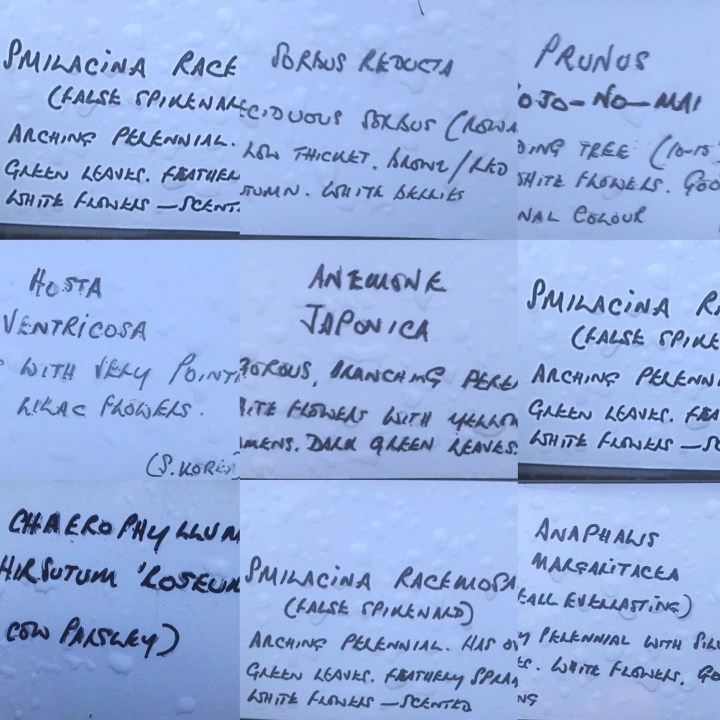 SMILACINA RACE
(FALSE SPIKENAR
ARCHING PERENNIAL.
GREEN LEAVES. FEATHER
WHITE FLOWERS — SCENT
SORBUS REDUCTA
CIDUOUS SORBUS (ROWA
LOW THICKET. BRONZ/RED
TUMN. WHITE BERRIES
PRUNUS
OJO-NO-MAI
DING TREE (10-15
HITE FLOWERS. GOO
NAL COLOUR
HOSTA
VENTRICOSA
WITH VERY POINT
LILAC FLOWERS.
(S. KOREA
ANEMONE
JAPONICA
GOROUS, BRANCHING PERE
ITE FLOWERS WITH YELLOW
MENS. DARK GREEN LEAVES.
SMILACINA RA
(FALSE SPIKE
ARCHING PERENN
GREEN LEAVES. FEA
WHITE FLOWERS — SC
CHAEROPHYLLUM
HIRSUTUM 'ROSEUM
COW PARSLEY)
SMILACINA RACEMOSA
(FALSE SPIKENARD)
ARCHING PERENNIAL. HAS OV
GREEN LEAVES. FEATHERY SPRAY
WHITE FLOWERS — SCENTED
ANAPHALIS
MARGARITACEA
EALL EVERLASTING)
Y PERENNIAL WITH SILV
ES. WHITE FLOWERS. GO
NG